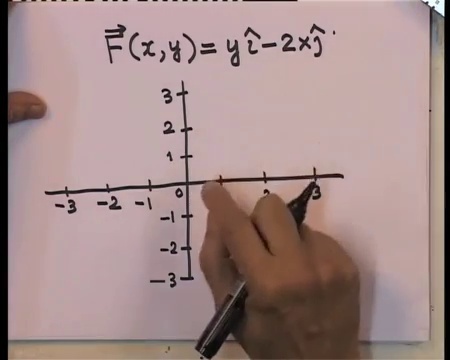 F⃗(x,y) = y î − 2x ĵ
3
2
1
-3 -2 -1 0 3
-1
-2
-3